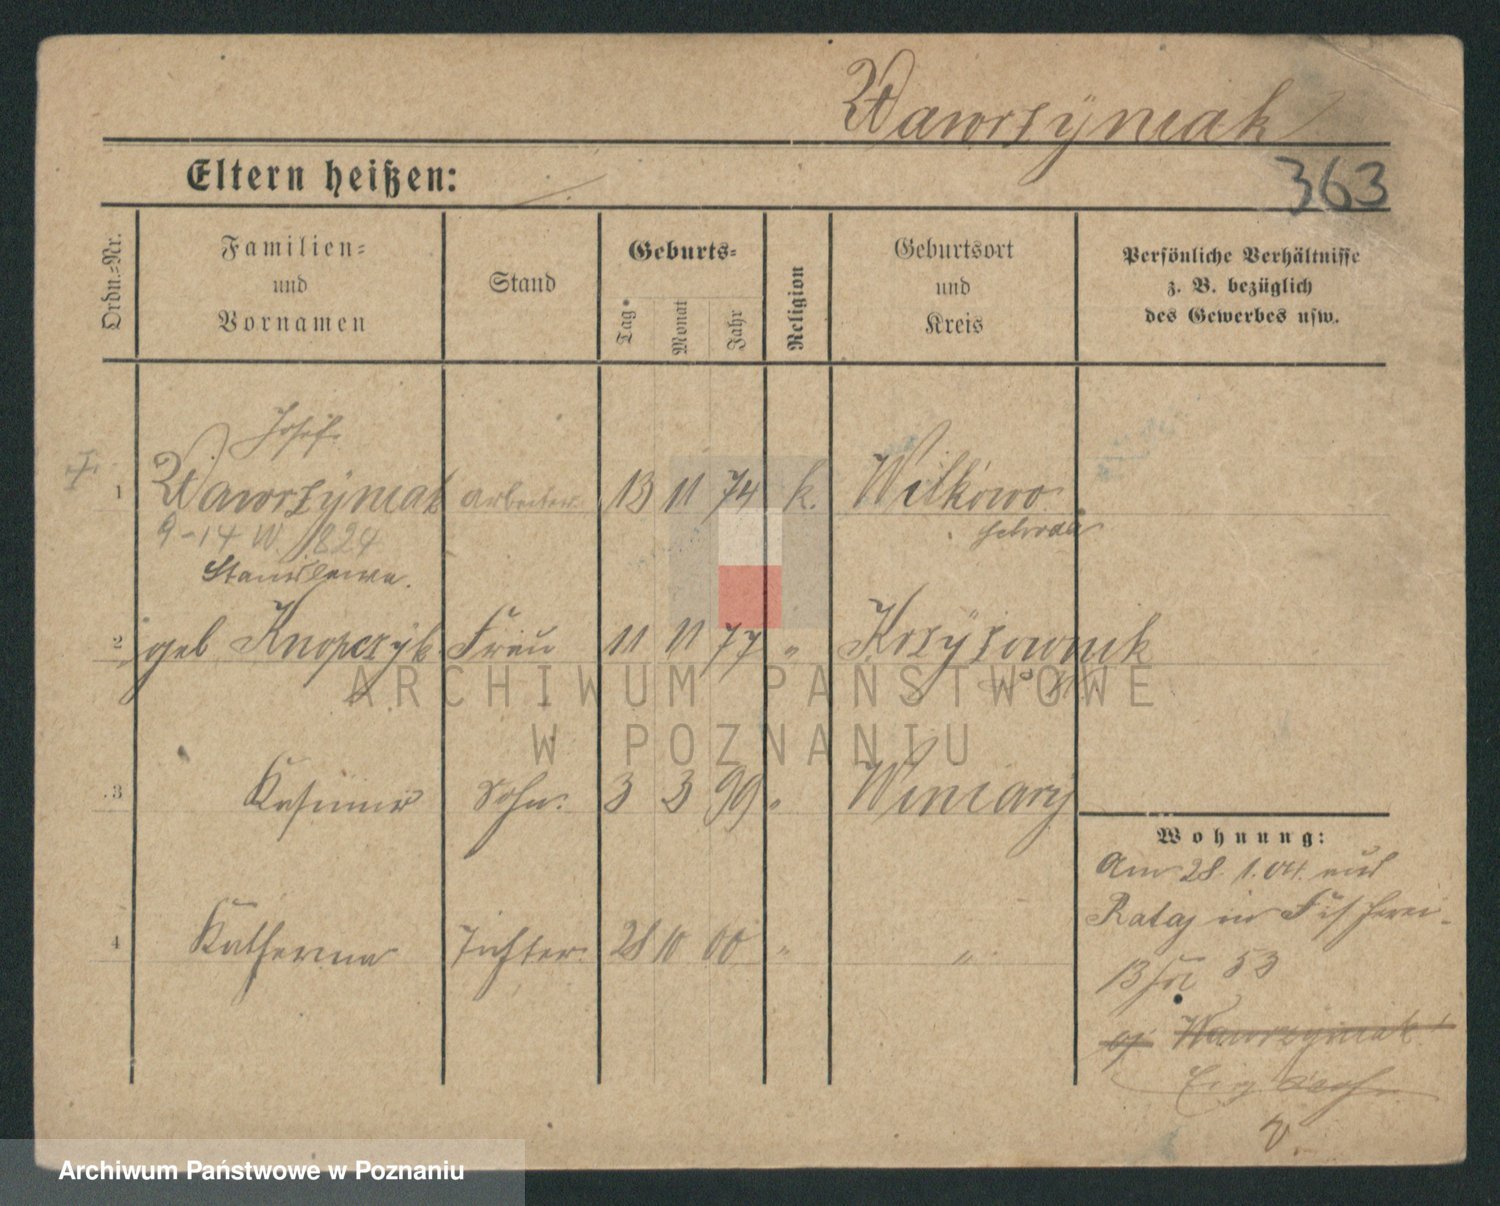 Wawrzÿniak
363
Eltern heißen:
Ordn.-Nr.
Familien-
und
Vornamen
Stand
Geburts-
Tag
Monat
Jahr
Religion
Geburtsort
und
Kreis
Persönliche Verhältnisse
z. B. bezüglich
des Gewerbes usw.
Josef
1 Wawrzÿniak Arbeiter 13 11 74 k. Wilkowo
Schroda
9-14 W. 1824
Stanislawa.
2 geb Knopczÿk Frau 11 11 77 " Krzÿzownik
ARCHIWUM PAŃSTWOWE
W POZNANIU
3 Kasimir Sohn. 3 3 99 " Winiarÿ
Wohnung:
Am 28. 1. 04. aus
Rataj in Fischerei-
4 Katharina Tochter. 28 10 00 " "
13 53
Wawrzyniak
v.
Archiwum Państwowe w Poznaniu